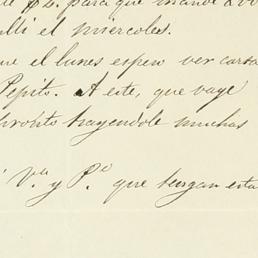 $2. para que mande
alli el miercoles.
ue el lunes espero ver carta
Pepito. A este, que vaya
trayendole muchas
V.ª y P.ª que tengan esta